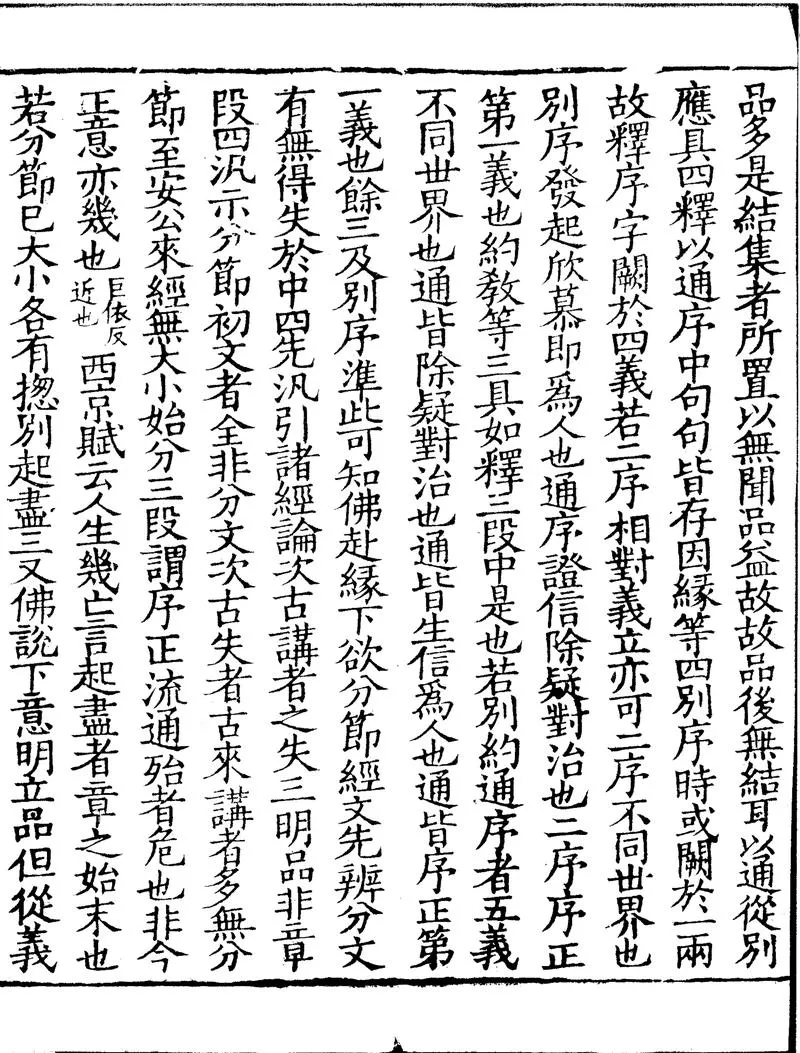 品多是結集者所置以無聞品益故故品後無結耳以通從別
應具四釋以通序中句句皆存因緣等四別序時或闕於一兩
故釋序字闕於四義若二序相對義立亦可二序不同世界也
別序發起欣慕即為人也通序證信除疑對治也二序序正
第一義也約教等三具如釋三段中是也若別約通序者五義
不同世界也通皆除疑對治也通皆生信為人也通皆序正第
一義也餘三及別序準此可知佛赴緣下欲分節經文先辨分文
有無得失於中四先汎引諸經論次古講者之失三明品非章
段四汎示分節初文者全非分文次古失者古來講者多無分
節至安公來經無大小始分三段謂序正流通殆者危也非今
正意亦幾也巨依反近也西京賦云人生幾亡言起盡者章之始末也
若分節已大小各有揔別起盡三又佛說下意明立品但從義